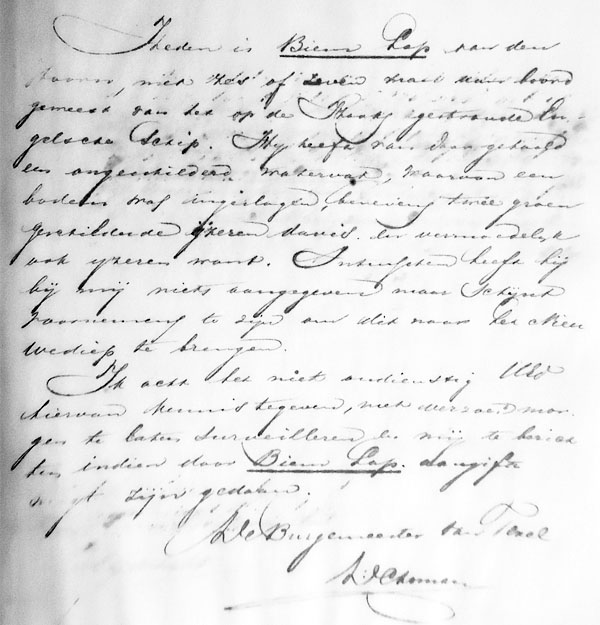 Heden is Biem Lap van den
Hoorn, met zes of zeven man aan boord
geweest van het op de Haaks gestrande En-
gelsche Schip. Hij heeft van daar gehaald
een ongeschilderd watervat, waarvan een
bodem was ingeslagen, benevens twee groen
geschilderde ijzeren davis. en vermoedelijk
ook ijzeren want. Intusschen heeft hij
bij mij niets aangegeven maar schijnt
voornemens te zijn om dit naar het Nieu
wediep te brengen.
Ik acht het niet ondienstig UEd
hiervan kennis te geven, met verzoek mor-
gen te laten surveilleren en mij te berich
ten indien door Biem Lap aangifte
mogt zijn gedaan.
De Burgemeester van Texel